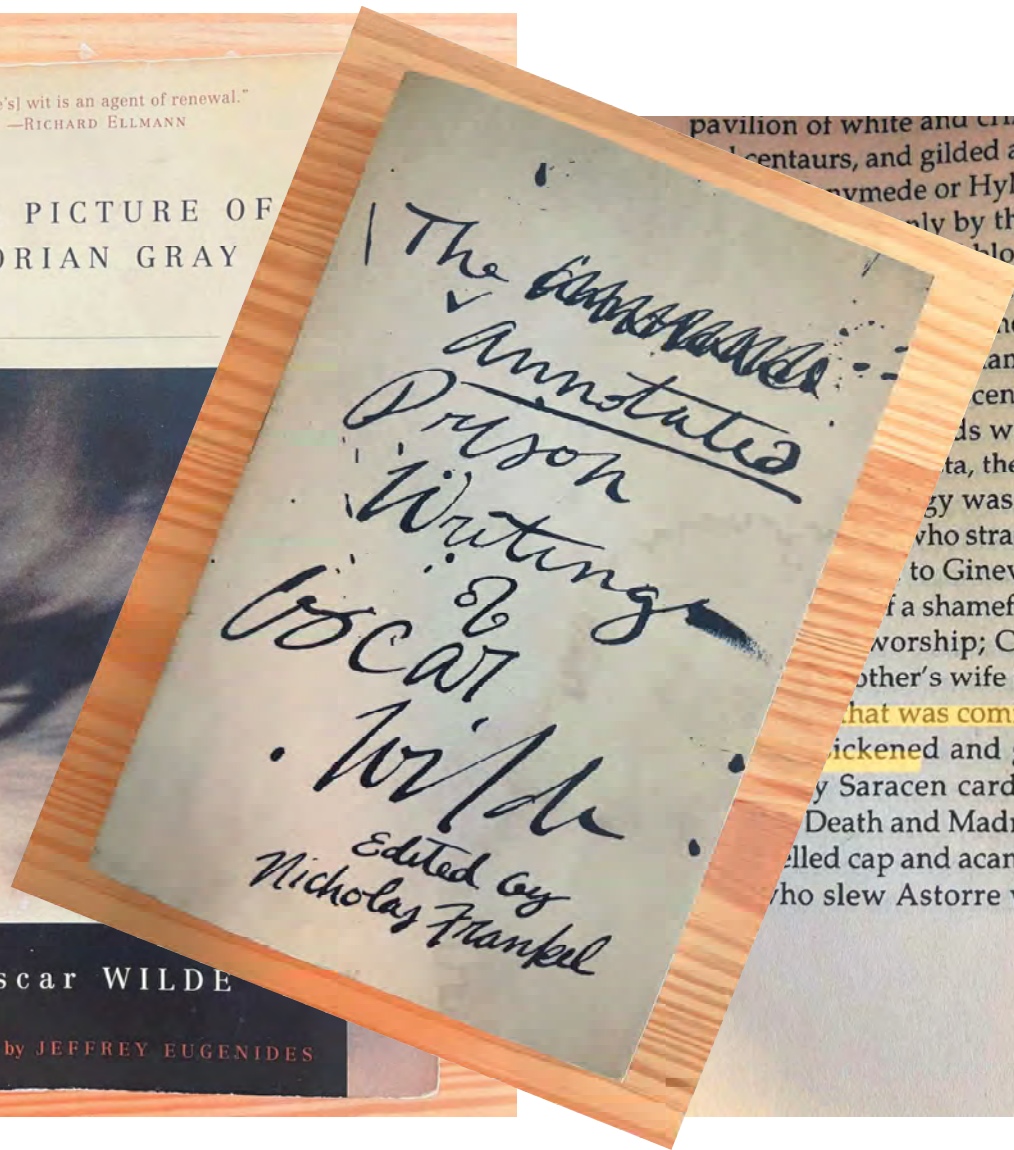 e's] wit is an agent of renewal."
—RICHARD ELLMANN
PICTURE OF
ORIAN GRAY
scar WILDE
by JEFFREY EUGENIDES
The
annotated
Prison
Writings
of
Oscar
Wilde
Edited by
Nicholas Frankel
pavilion of white and cri
centaurs, and gilded a
nymede or Hyl
ply by th
blo
an
cen
ds w
ta, the
gy was
who stra
to Ginev
f a shamef
worship; C
other's wife
that was com
ickened and
y Saracen card
Death and Madn
elled cap and acan
who slew Astorre